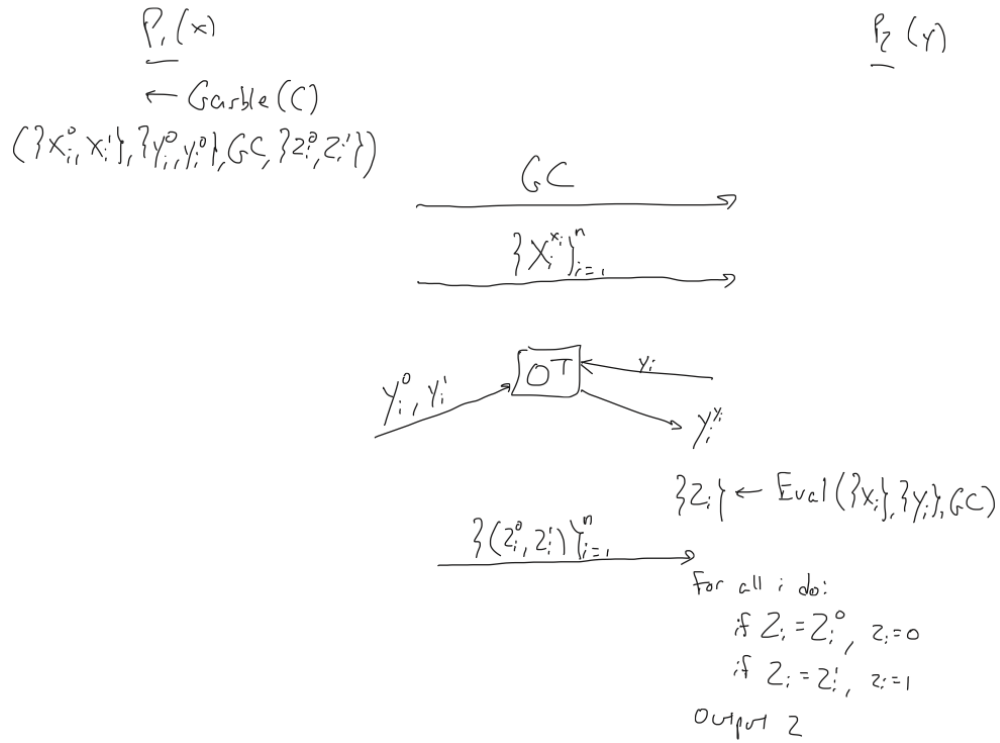 P₁(x)
P₂(y)
← Garble(C)
({Xᵢ⁰, Xᵢ¹}, {Yᵢ⁰, Yᵢ⁰}, GC, {Zᵢ⁰, Zᵢ¹})
GC
{Xᵢ^{xᵢ}}ⁿᵢ₌₁
OT
yᵢ
Yᵢ⁰, Yᵢ¹
Yᵢ^{yᵢ}
{Zᵢ} ← Eval({Xᵢ}, {Yᵢ}, GC)
{(Zᵢ⁰, Zᵢ¹)}ⁿᵢ₌₁
For all i do:
if Zᵢ = Zᵢ⁰, zᵢ=0
if Zᵢ = Zᵢ¹, zᵢ=1
Output z